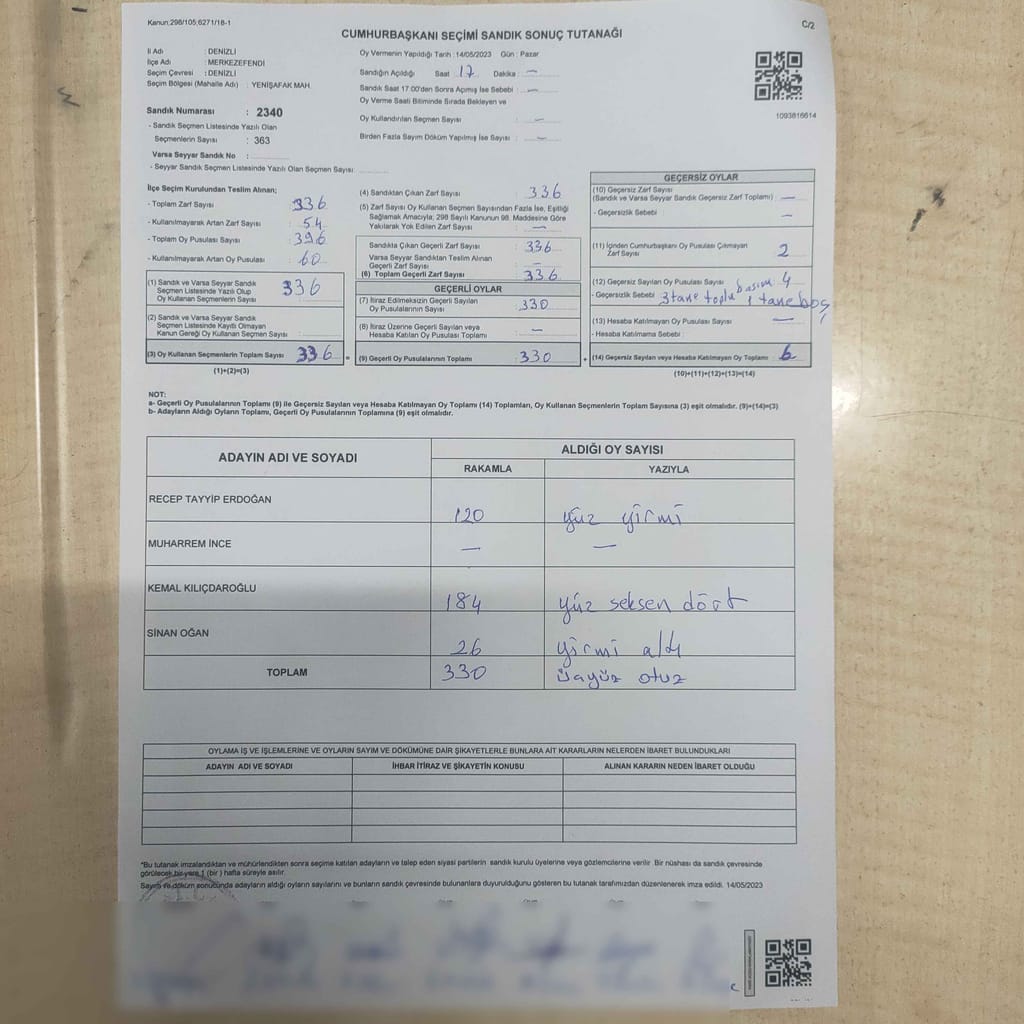 Kanun;298/105;6271/16-1
C/2
CUMHURBAŞKANI SEÇİMİ SANDIK SONUÇ TUTANAĞI
İl Adı : DENİZLİ
İlçe Adı : MERKEZEFENDİ
Seçim Çevresi : DENİZLİ
Seçim Bölgesi (Mahalle Adı) : YENİŞAFAK MAH.
Sandık Numarası : 2340
- Sandık Seçmen Listesinde Yazılı Olan
Seçmenlerin Sayısı : 363
Varsa Seyyar Sandık No :
- Seyyar Sandık Seçmen Listesinde Yazılı Olan Seçmen Sayısı:
Oy Vermenin Yapıldığı Tarih :14/05/2023 Gün : Pazar
Sandığın Açıldığı Saat 17 Dakika : —
Sandık Saat 17.00'den Sonra Açımış İse Sebebi : —
Oy Verme Saati Bitiminde Sırada Bekleyen ve
Oy Kullandırılan Seçmen Sayısı : —
Birden Fazla Sayım Döküm Yapılmış İse Sayısı : —
1093816614
İlçe Seçim Kurulundan Teslim Alınan;
- Toplam Zarf Sayısı : 336
- Kullanılmayarak Artan Zarf Sayısı : 54
- Toplam Oy Pusulası Sayısı : 396
- Kullanılmayarak Artan Oy Pusulası : 60
(1) Sandık ve Varsa Seyyar Sandık
Seçmen Listesinde Yazılı Olup
Oy Kullanan Seçmenlerin Sayısı : 336
(2) Sandık ve Varsa Seyyar Sandık
Seçmen Listesinde Kayıtlı Olmayan
Kanun Gereği Oy Kullanan Seçmen Sayısı :
(3) Oy Kullanan Seçmenlerin Toplam Sayısı : 336 =
(1)+(2)=(3)
(4) Sandıktan Çıkan Zarf Sayısı : 336
(5) Zarf Sayısı Oy Kullanan Seçmen Sayısından Fazla İse, Eşitliği
Sağlamak Amacıyla; 298 Sayılı Kanunun 98. Maddesine Göre
Yakılarak Yok Edilen Zarf Sayısı : —
Sandıkta Çıkan Geçerli Zarf Sayısı : 336
Varsa Seyyar Sandıktan Teslim Alınan
Geçerli Zarf Sayısı : —
(6) Toplam Geçerli Zarf Sayısı : 336
GEÇERLİ OYLAR
(7) İtiraz Edilmeksizin Geçerli Sayılan
Oy Pusulalarının Sayısı : 330
(8) İtiraz Üzerine Geçerli Sayılan veya
Hesaba Katılan Oy Pusulası Toplamı : —
(9) Geçerli Oy Pusulalarının Toplamı : 330 +
GEÇERSİZ OYLAR
(10) Geçersiz Zarf Sayısı
(Sandık ve Varsa Seyyar Sandık Geçersiz Zarf Toplamı) : —
- Geçersizlik Sebebi : —
(11) İçinden Cumhurbaşkanı Oy Pusulası Çıkmayan
Zarf Sayısı : 2
(12) Geçersiz Sayılan Oy Pusulası Sayısı : 4
- Geçersizlik Sebebi : 3 tane toplu basım 1 tane boş
(13) Hesaba Katılmayan Oy Pusulası Sayısı : —
- Hesaba Katılmama Sebebi :
(14) Geçersiz Sayılan veya Hesaba Katılmayan Oy Toplamı : 6
(10)+(11)+(12)+(13)=(14)
NOT:
a- Geçerli Oy Pusulalarının Toplamı (9) ile Geçersiz Sayılan veya Hesaba Katılmayan Oy Toplamı (14) Toplamları, Oy Kullanan Seçmenlerin Toplam Sayısına (3) eşit olmalıdır. (9)+(14)=(3)
b- Adayların Aldığı Oyların Toplamı, Geçerli Oy Pusulalarının Toplamına (9) eşit olmalıdır.
ADAYIN ADI VE SOYADI
ALDIĞI OY SAYISI
RAKAMLA YAZIYLA
RECEP TAYYİP ERDOĞAN 120 yüz yirmi
MUHARREM İNCE — —
KEMAL KILIÇDAROĞLU 184 yüz seksen dört
SİNAN OĞAN 26 yirmi altı
TOPLAM 330 üçyüz otuz
OYLAMA İŞ VE İŞLEMLERİNE VE OYLARIN SAYIM VE DÖKÜMÜNE DAİR ŞİKAYETLERLE BUNLARA AİT KARARLARIN NELERDEN İBARET BULUNDUKLARI
ADAYIN ADI VE SOYADI İHBAR İTİRAZ VE ŞİKAYETİN KONUSU ALINAN KARARIN NEDEN İBARET OLDUĞU
"Bu tutanak imzalandıktan ve mühürlendikten sonra seçime katılan adayların ve talep eden siyasi partilerin sandık kurulu üyelerine veya gözlemcilerine verilir. Bir nüshası da sandık çevresinde
görülecek bir yere 1 (bir ) hafta süreyle asılır.
Sayım ve döküm sonucunda adayların aldığı oyların sayılarını ve bunların sandık çevresinde bulunanlara duyurulduğunu gösteren bu tutanak tarafımızdan düzenlenerek imza edildi. 14/05/2023